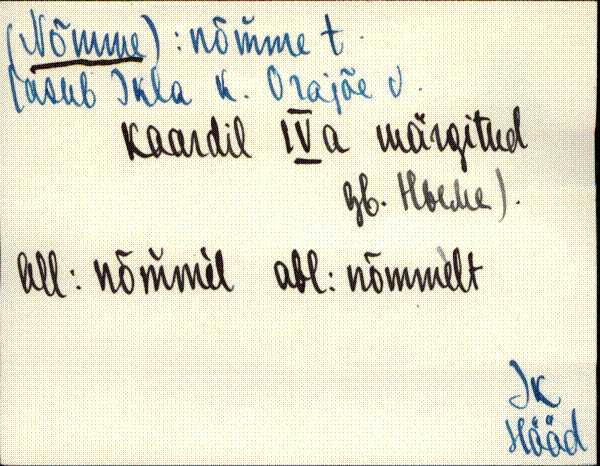 (Nõmme) : nõm̆me t.
(asub Ikla k. Orajõe v.
kaardil IVa märgitud
дв. Нюме).
all: nõm̆mel abl: nõmmelt
Ik
Hääd